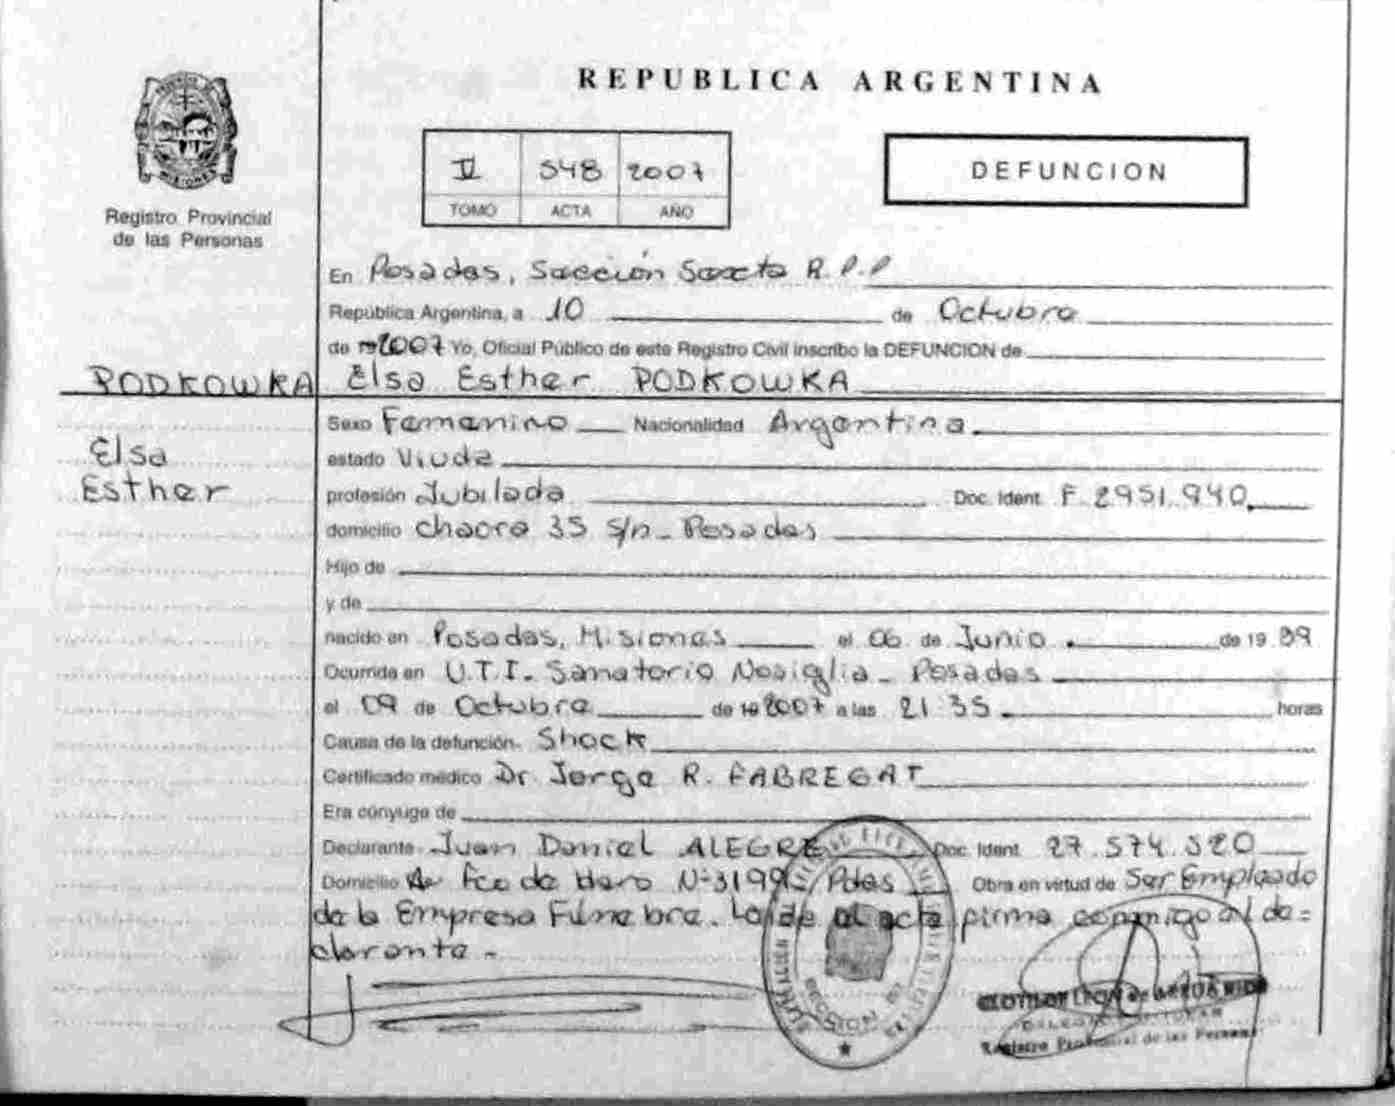 REPUBLICA ARGENTINA
MISIONES
Registro Provincial
de las Personas
II 548 2007
TOMO ACTA AÑO
DEFUNCION
En Posadas, Sección Sexta R.P.P
República Argentina, a 10 de Octubre
de 2007 Yo, Oficial Público de este Registro Civil inscribo la DEFUNCION de
PODKOWKA Elsa Esther PODKOWKA
Elsa
Esther
Sexo Femenino Nacionalidad Argentina
estado Viuda
profesión Jubilada Doc. Ident. F. 2951.940
domicilio chacra 35 s/n - Posadas
Hijo de
y de
nacido en Posadas, Misiones el 06 de Junio de 19 39
Ocurrida en U.T.I. Sanatorio Nosiglia - Posadas
el 09 de Octubre de 19 2007 a las 21:35 horas
Causa de la defunción Shock
Certificado médico Dr. Jorge R. FABREGAT
Era cónyuge de
Declarante Juan Daniel ALEGRE Doc. Ident. 27.574.520
Domicilio Av Fco de Haro N-3199 Pdas Obra en virtud de Ser Empleado
de la Empresa Fúnebre. el acta firma conmigo el de=
clarante -
SECCION
Registro Provincial de las Personas